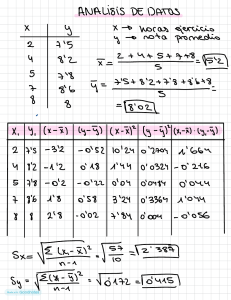 ANÁLISIS DE DATOS
x y x → horas ejercicio
2 7'5 y → nota promedio
4 8'2 x̄ = 2 + 4 + 5 + 7 + 8 / 5 = 5'2
5 7'8
7 8'6 ȳ = 7'5 + 8'2 + 7'8 + 8'6 + 8 / 5 =
8 8 = 8'02
Xᵢ Yᵢ (x-x̄) (y-ȳ) (x-x̄)² (y-ȳ)² (x-x̄)·(y-ȳ)
2 7'5 -3'2 -0'52 10'24 0'2704 1'664
4 8'2 -1'2 0'18 1'44 0'0324 -0'216
5 7'8 -0'2 -0'22 0'04 0'0484 0'044
7 8'6 1'8 0'58 3'24 0'3364 1'044
8 8 2'8 -0'02 7'84 0'004 -0'056
Sx = √ Σ (xᵢ-x̄)² / n-1 = √ 57 / 10 = 2'387
Sy = √ Σ (x-ȳ)² / n-1 = √0'172 = 0'415